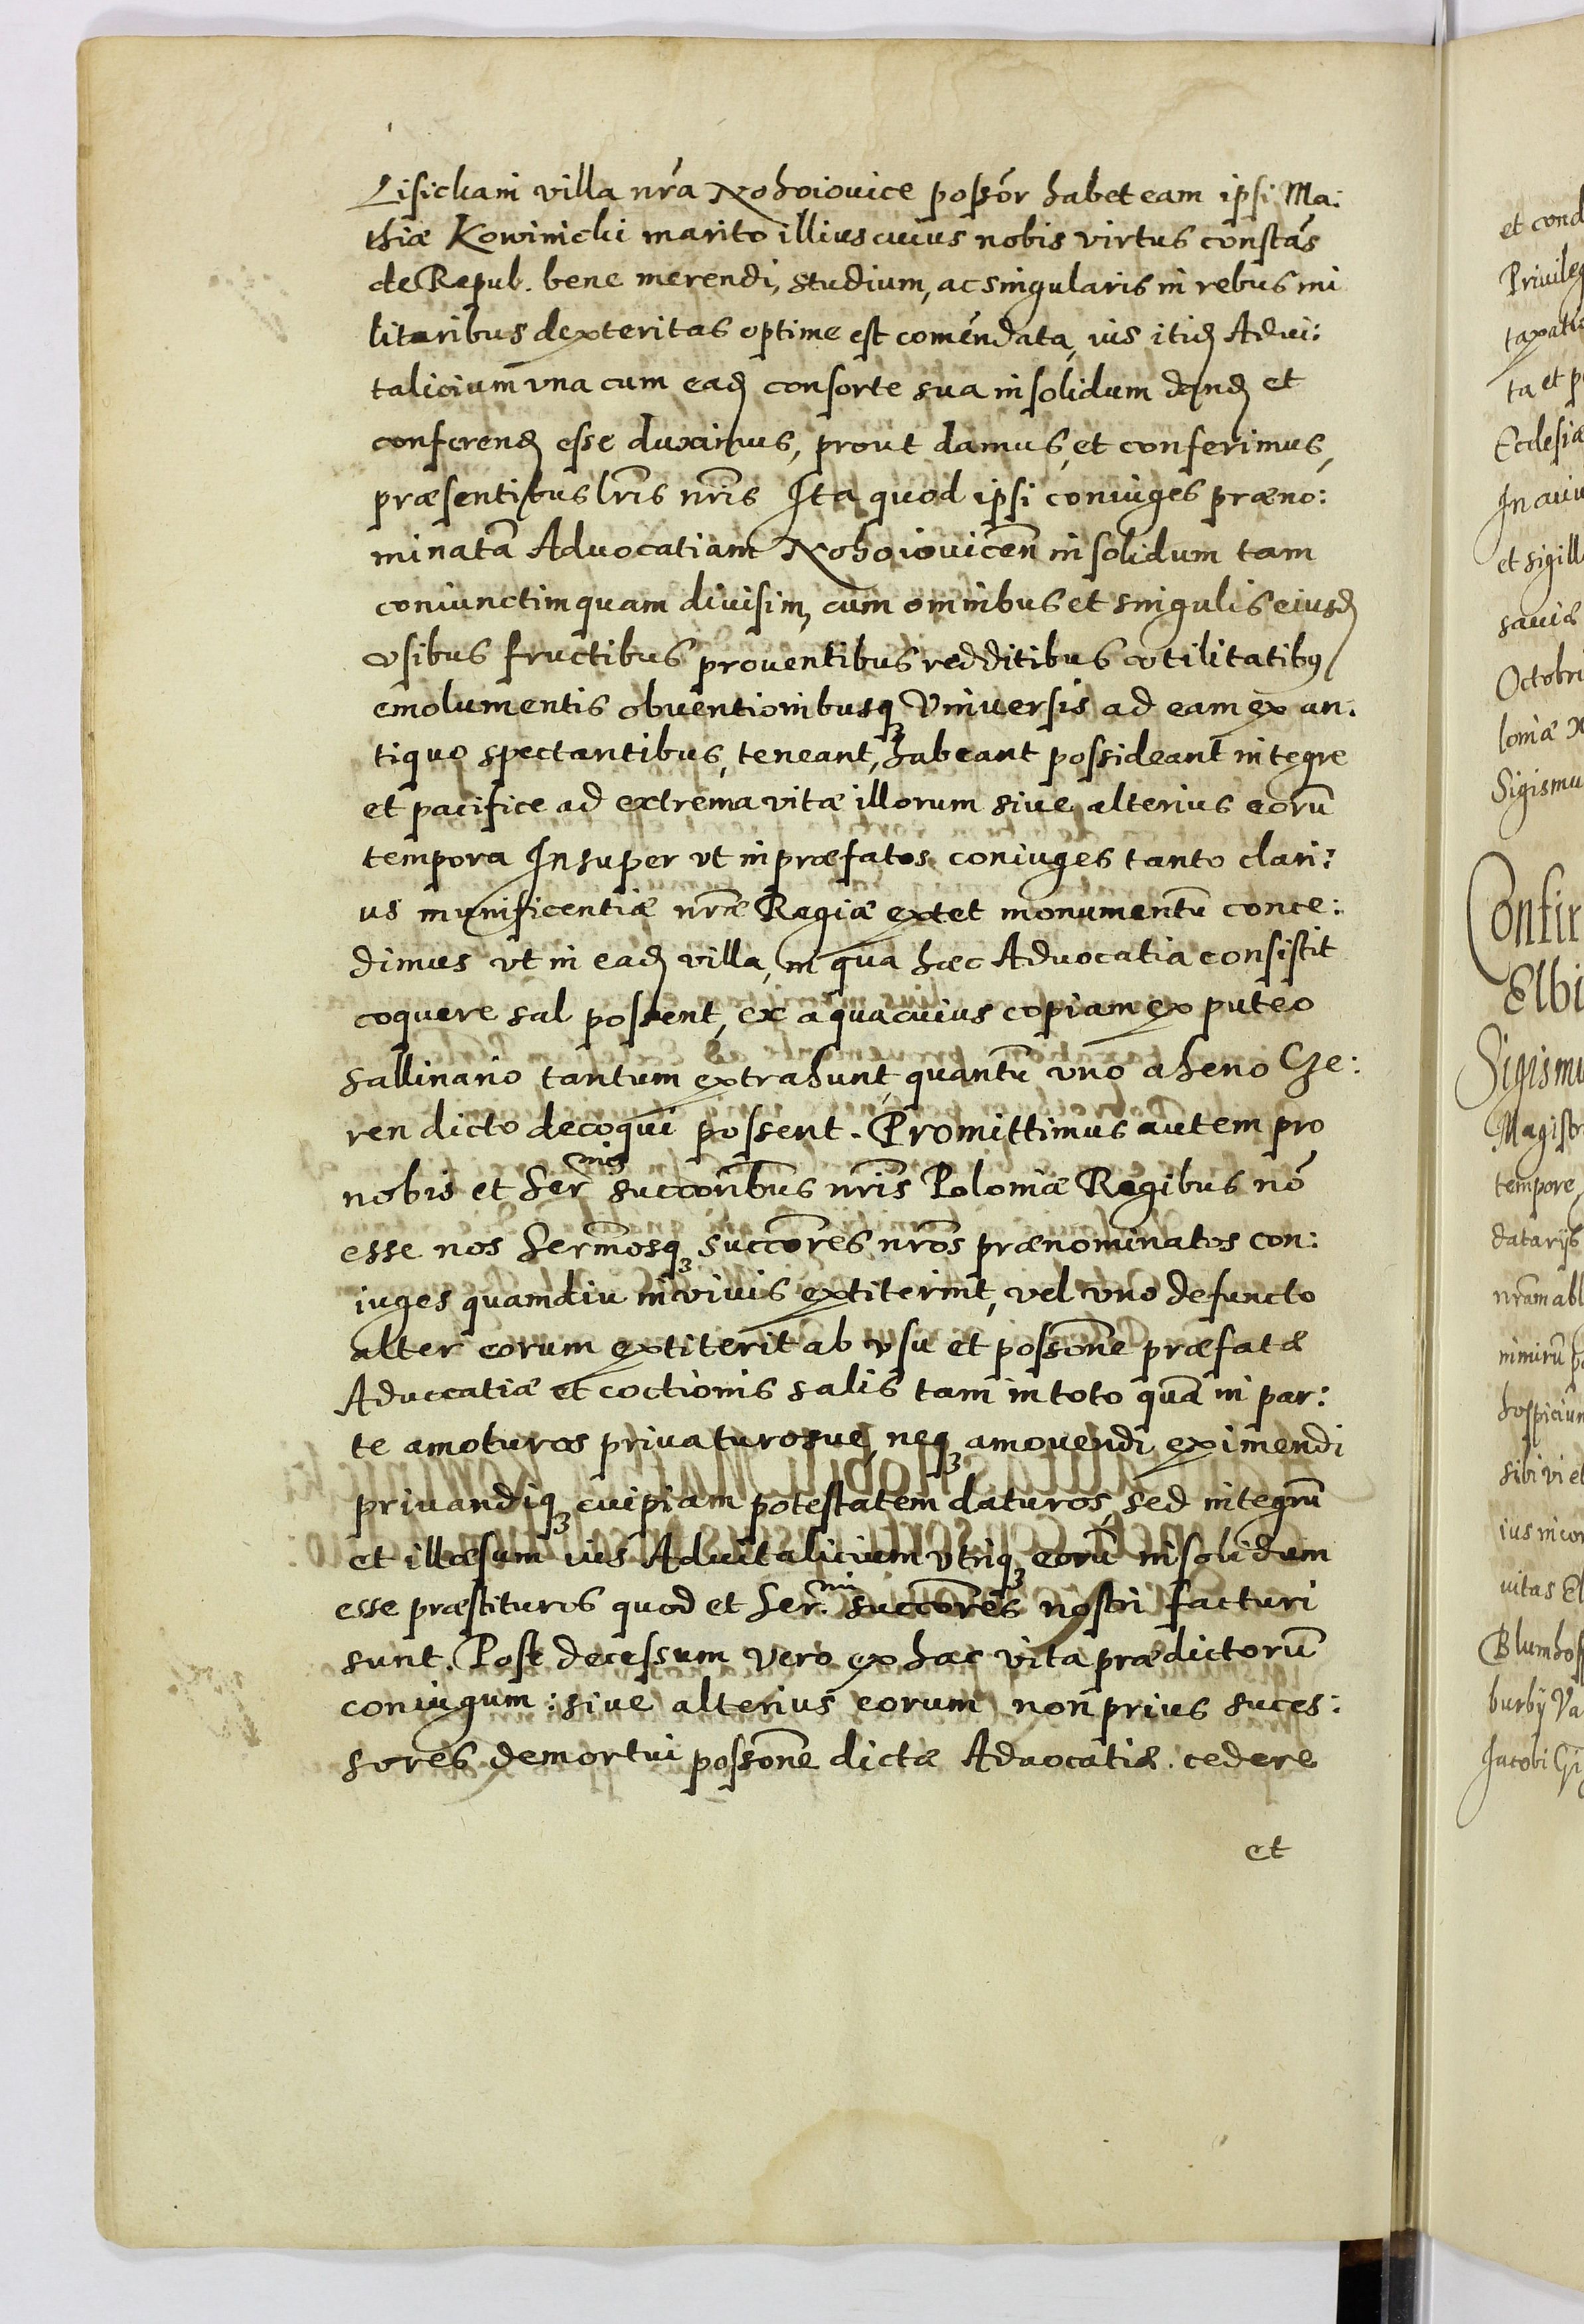 Lisickam villa nrã Nohoiovice possõr habet eam ipsi Ma:
thiæ Kowinicki marito illius cuius nobis virtus constãs
de Repub. bene merendi, studium, ac singularis in rebus mi
litaribus dexteritas optime est comẽndata, ius itid Advi:
talicium una cum ead consorte sua insolidum dand et
conferend esse duximus, prout damus, et conferimus,
præsentibus lris nris Ita quod ipsi coniuges præno:
minatã Advocatiam Nohoiovicen̄ insolidum tam
coniunctim quam divisim, cum omnibus et singulis eiusd
vsibus fructibus proventibus redditibus vtilitatibꝰ
emolumentis obventionibusqꝫ Vniversis ad eam ex an:
tiquo spectantibus, teneant, habeant possideant integre
et pacifice ad extrema vitæ illorum sive alterius eorũ
tempora Insuper vt in præfatos coniuges tanto clari:
us munificentiæ nræ Regiæ extet monumentũ conce:
dimus vt in ead villa, in qua hæc Advocatia consistit
coquere sal possent, ex aqua cuius copiam ex puteo
sallinario tantum extrahunt, quantũ vno aheno Cze:
ren dicto decoqui possent. Promittimus autem pro
nobis et Ser mis succoribus nris Poloniæ Regibus nõ
esse nos Sermosqꝫ succores nros prænominatos con:
iuges quamdiu in vivis extiterint, vel vno defuncto
alter eorum extiterit ab vsu et possone præfatæ
Advocatiæ et coctionis salis tam in toto quã in par:
te amoturos privaturosve, neqꝫ amovendi eximendi
privandiqꝫ cuipiam potestatem daturos, sed integrũ
et illæsum ius Advitalicium vtriqꝫ eorũ insolidum
esse præstituros quod et Ser. mi succores nostri facturi
sunt. Post decessum vero ex hac vita prædictorũ
coniugum: sive alterius eorum non prius suces:
sores demortui possone dictæ Advocatiæ. cedere
et
et cond
Privileg
taxatio
ta et p
Ecclesiæ
In cuiu
et sigill
saviæ
Octobri
loniæ
Sigismu
Confir
Elbi
Sigismu
Magistr
tempore
datarijs
nram abl
nimirũ
hospicium
sibi vi et
ius in con
vitas El
Blumhof
burby Va
Jacobi